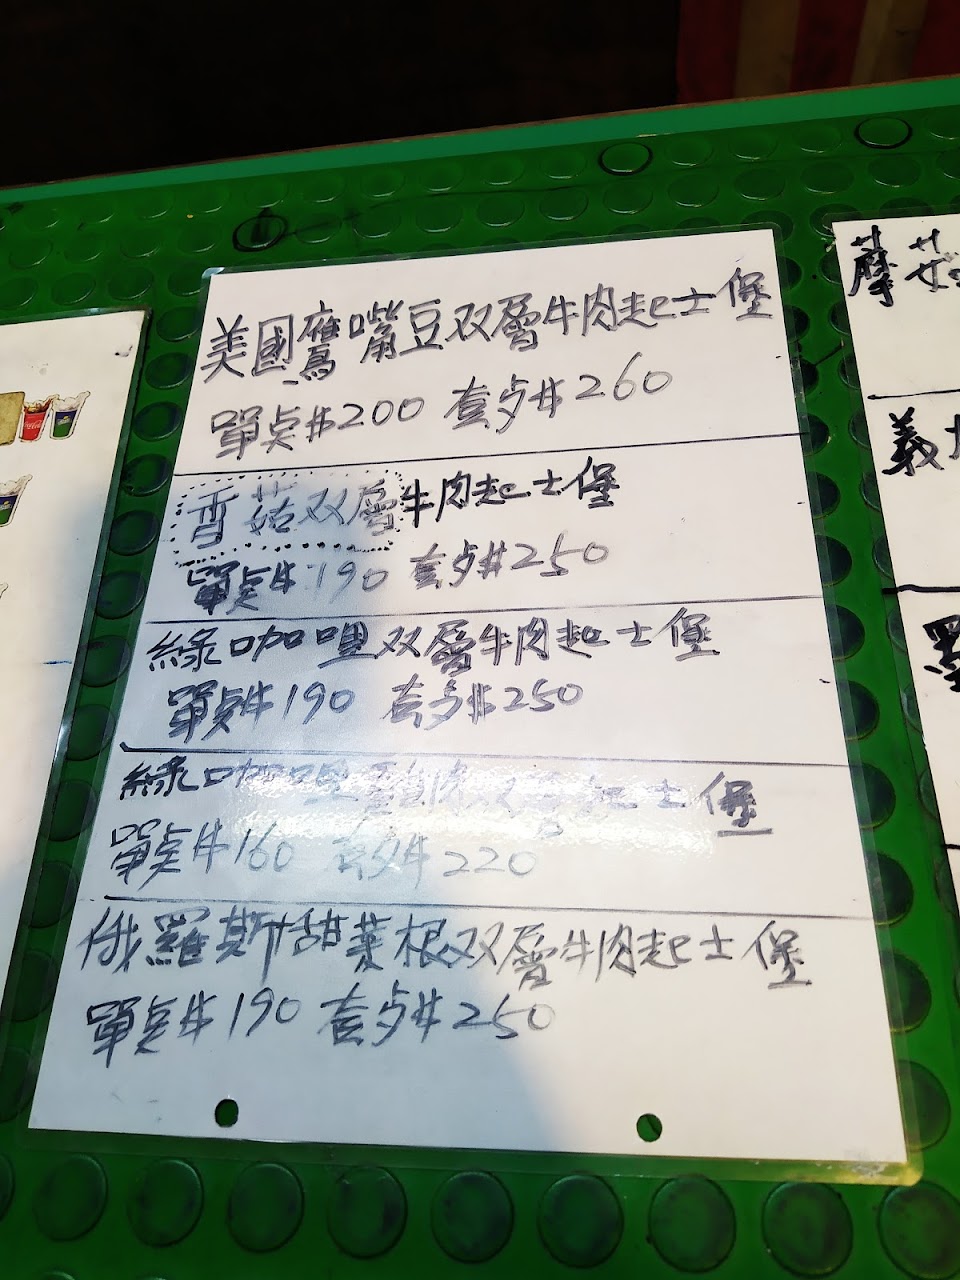 美國鷹嘴豆双層牛肉起士堡
單点$200 套歺$260
香菇双層牛肉起士堡
單点$190 套歺$250
綠咖哩双層牛肉起士堡
單点$190 套歺$250
綠咖哩雞肉双層起士堡
單点$160 套歺$220
俄羅斯甜菜根双層牛肉起士堡
單点$190 套歺$250
摩
義大
墨